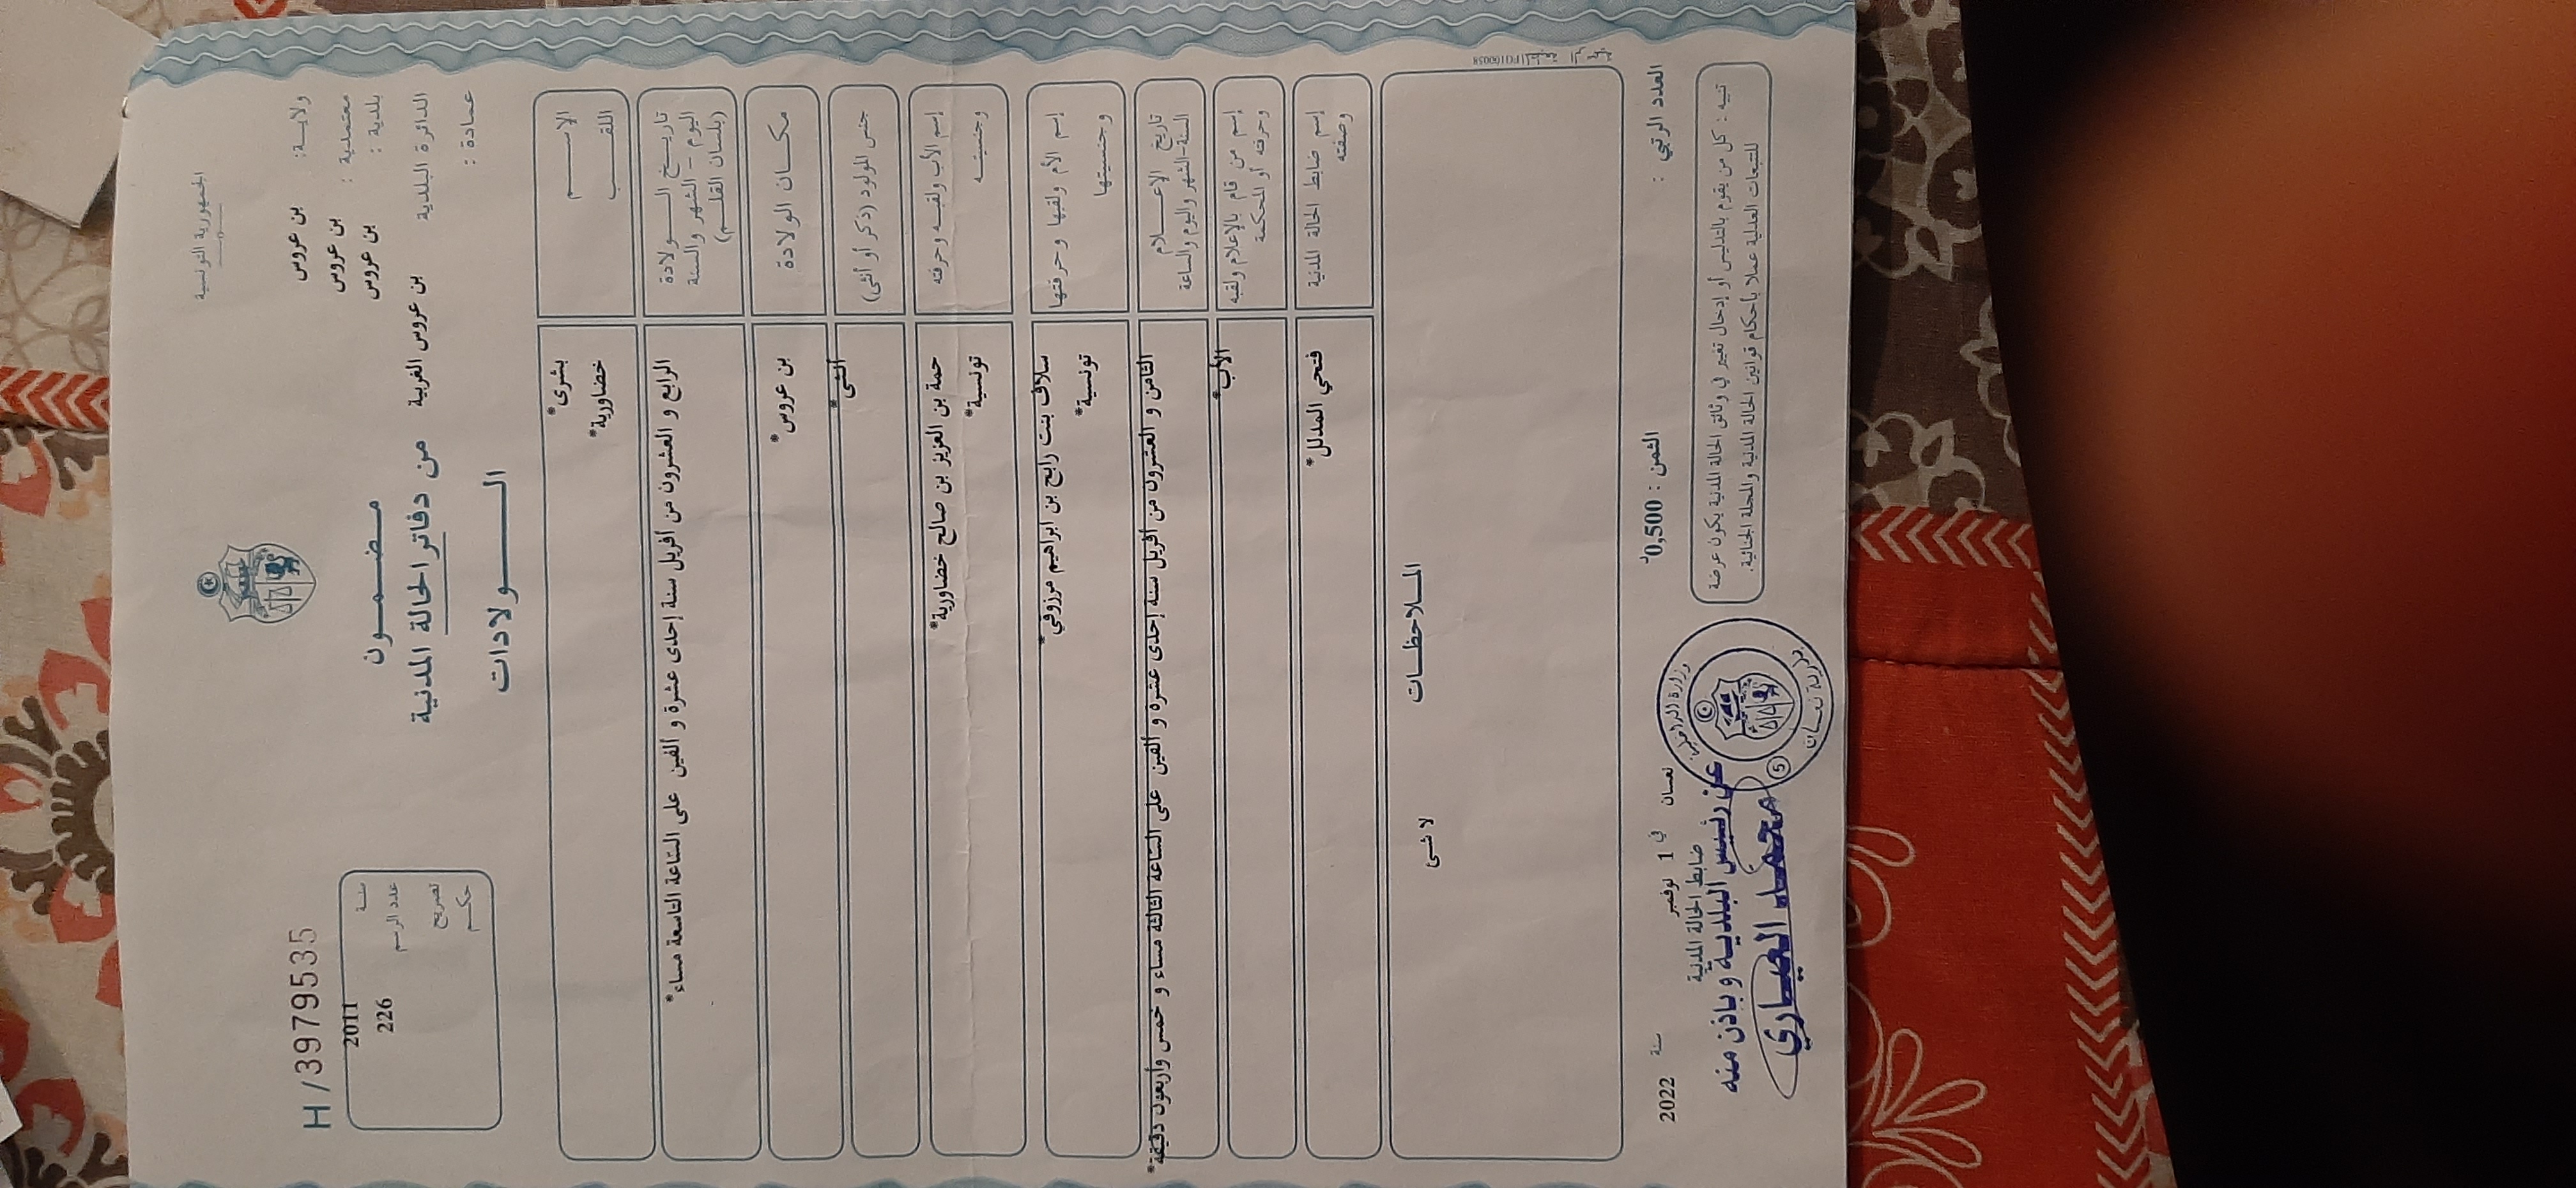 الجمهورية التونسية
ولايـــة: بن عروس
معتمدية : بن عروس
بلدية : بن عروس
الدائرة البلدية بن عروس الغربية
عمادة :
مـضـمـــون
من دفاتر الحالة المدنية
الـــــــولادات
H/3979535
سنة 2011
عدد الرسم 226
تصريح
حكم
الإســـــم بشرى*
اللقـــــب خضاورية*
تاريــخ الـــــولادة
اليوم - الشهر والسنة
(بلسان القلــم)
الرابع و العشرون من أفريل سنة إحدى عشرة و ألفين على الساعة التاسعة مساء*
مكـــان الولادة بن عروس*
جنس المولود (ذكر أو أنثى) أنثى*
إسم الأب ولقبــه وحرفته حمة بن العزيز بن صالح خضاورية*
وجنسيتــه تونسية*
إسم الأم ولقبها وحرفتها سلاف بنت رابح بن ابراهيم مرزوقي*
وجنسيتها تونسية*
تاريخ الإعـــلام
السنة-الشهر واليوم والساعة
الثامن و العشرون من أفريل سنة إحدى عشرة و ألفين على الساعة الثالثة مساء و خمس وأربعون دقيقة*
إسم من قام بالإعلام ولقبه الأب*
وحرفته أو المحكمة
إسم ضابط الحالة المدنية فتحي المدلل*
وصفته
المــلاحظــات
لا شئ
العدد الرتبي : الثمن : 0,500د
نعسان في 1 نوفمبر سنة 2022
ضابط الحالة المدنية
عن رئيس البلدية و باذن منه
محمد العياري
وزارة الداخلية
بلدية نعسان
5
تنبيه : كل من يقوم بالتدليس أو إدخال تغيير في وثائق الحالة المدنية يكون عرضة
للتتبعات العدلية عملا بأحكام قوانين الحالة المدنية والمجلة الجنائية.